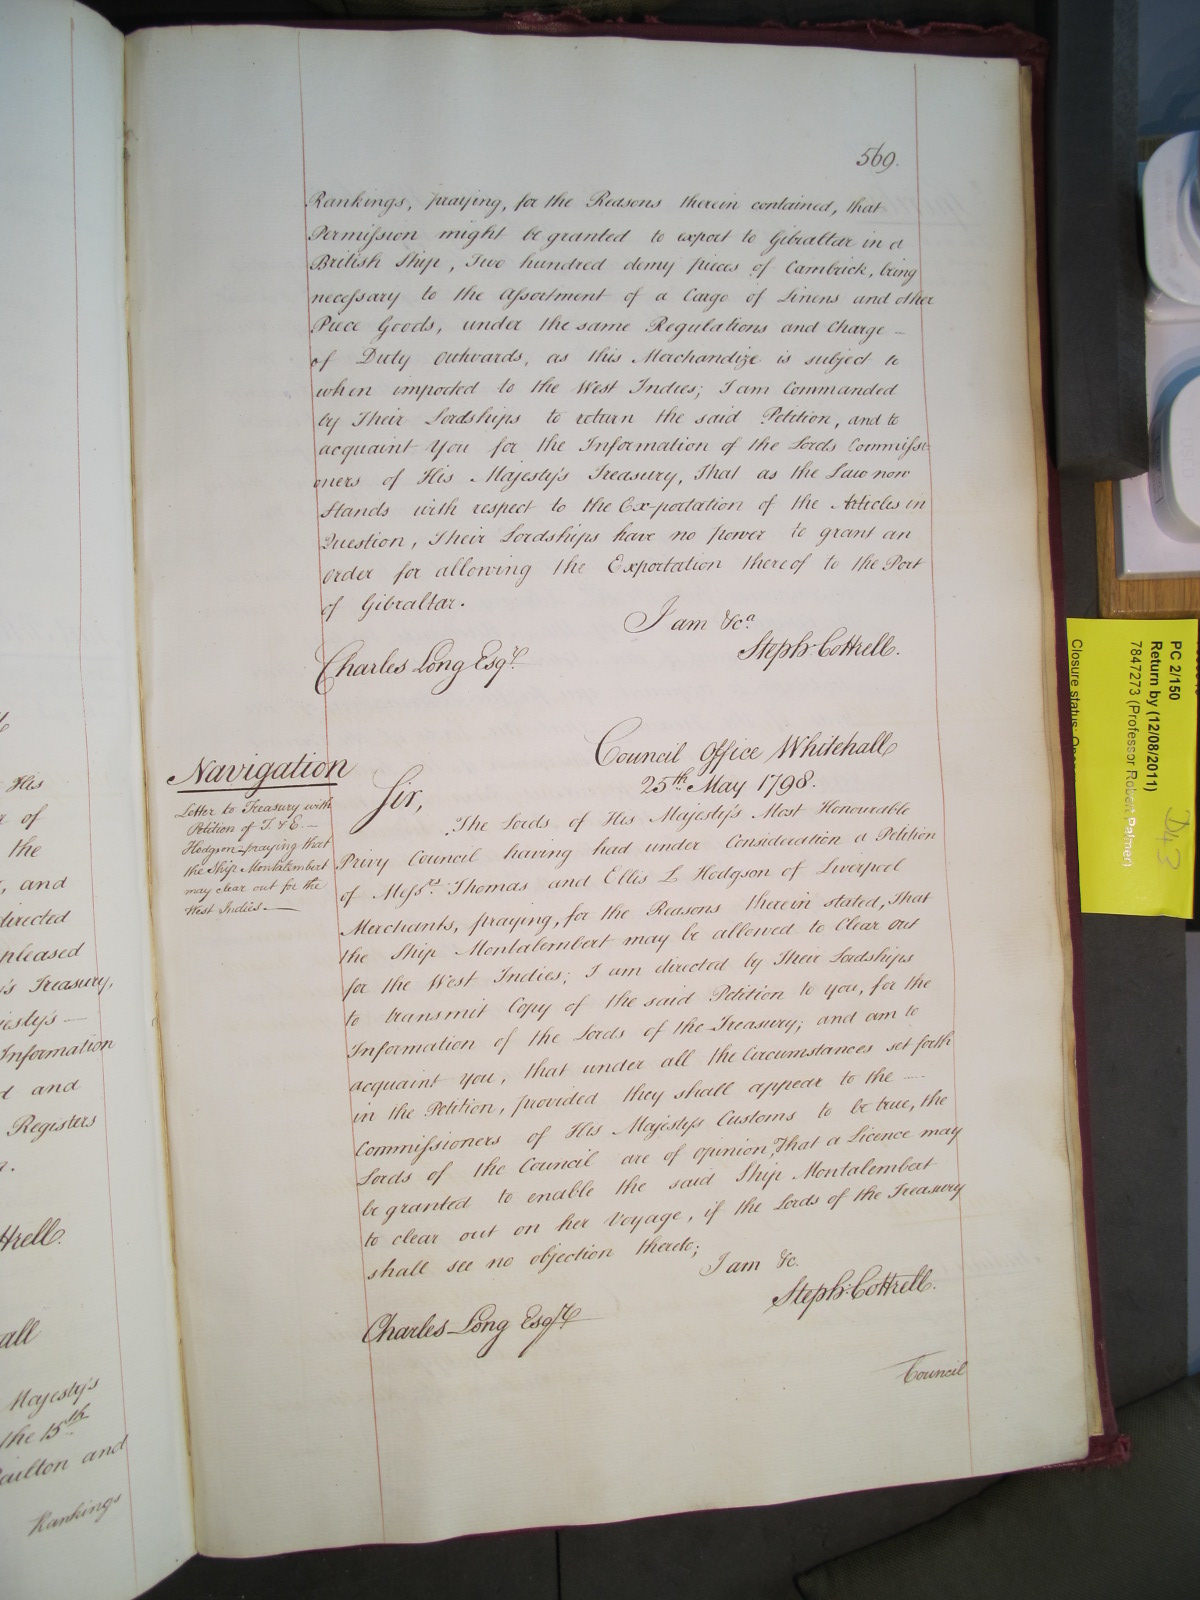 569.
Rankings, praying, for the Reasons therein contained, that
Permission might be granted to export to Gibraltar in a
British Ship, Two hundred demy pieces of Cambrick, being
necessary to the Assortment of a Cargo of Linens and other
Piece Goods, under the same Regulations and Charge –
of Duty outwards, as this Merchandize is subject to
when imported to the West Indies; I am Commanded
by Their Lordships to return the said Petition, and to
acquaint You for the Information of the Lords Commissi-
oners of His Majesty's Treasury, That as the Law now
Stands with respect to the Exportation of the Articles in
Question, Their Lordships have no power to grant an
order for allowing the Exportation thereof to the Port
of Gibraltar.
I am &ca.
Steph. Cottrell.
Charles Long Esqr.
Council Office Whitehall
25th. May 1798.
Navigation
Letter to Treasury with
Petition of T. & E. –
Hodgson – praying that
the Ship Montalembert
may clear out for the
West Indies. –
Sir,
The Lords of His Majesty's Most Honourable
Privy Council having had under Consideration a Petition
of Messrs. Thomas and Ellis L Hodgson of Liverpool
Merchants, praying, for the Reasons therein stated, That
the Ship Montalembert may be allowed to Clear out
for the West Indies; I am directed by Their Lordships
to transmit Copy of the said Petition to you, for the
Information of the Lords of the Treasury; and am to
acquaint you, that under all the Circumstances set forth
in the Petition, provided they shall appear to the –
Commissioners of His Majesty's Customs to be true, the
Lords of the Council are of opinion, That a Licence may
be granted to enable the said Ship Montalembert
to clear out on her Voyage, if the Lords of the Treasury
shall see no objection thereto;
I am &c.
Steph. Cottrell.
Charles Long Esqr.
Council
His
of
the
, and
directed
pleased
's Treasury,
Majesty's –
Information
and
Registers
ttrell.
all
Majesty's
the 15th
and
Rankings
PC 2/150
Return by (12/08/2011)
7847273 (Professor Robert Palmer)
Closure status: Open
D43